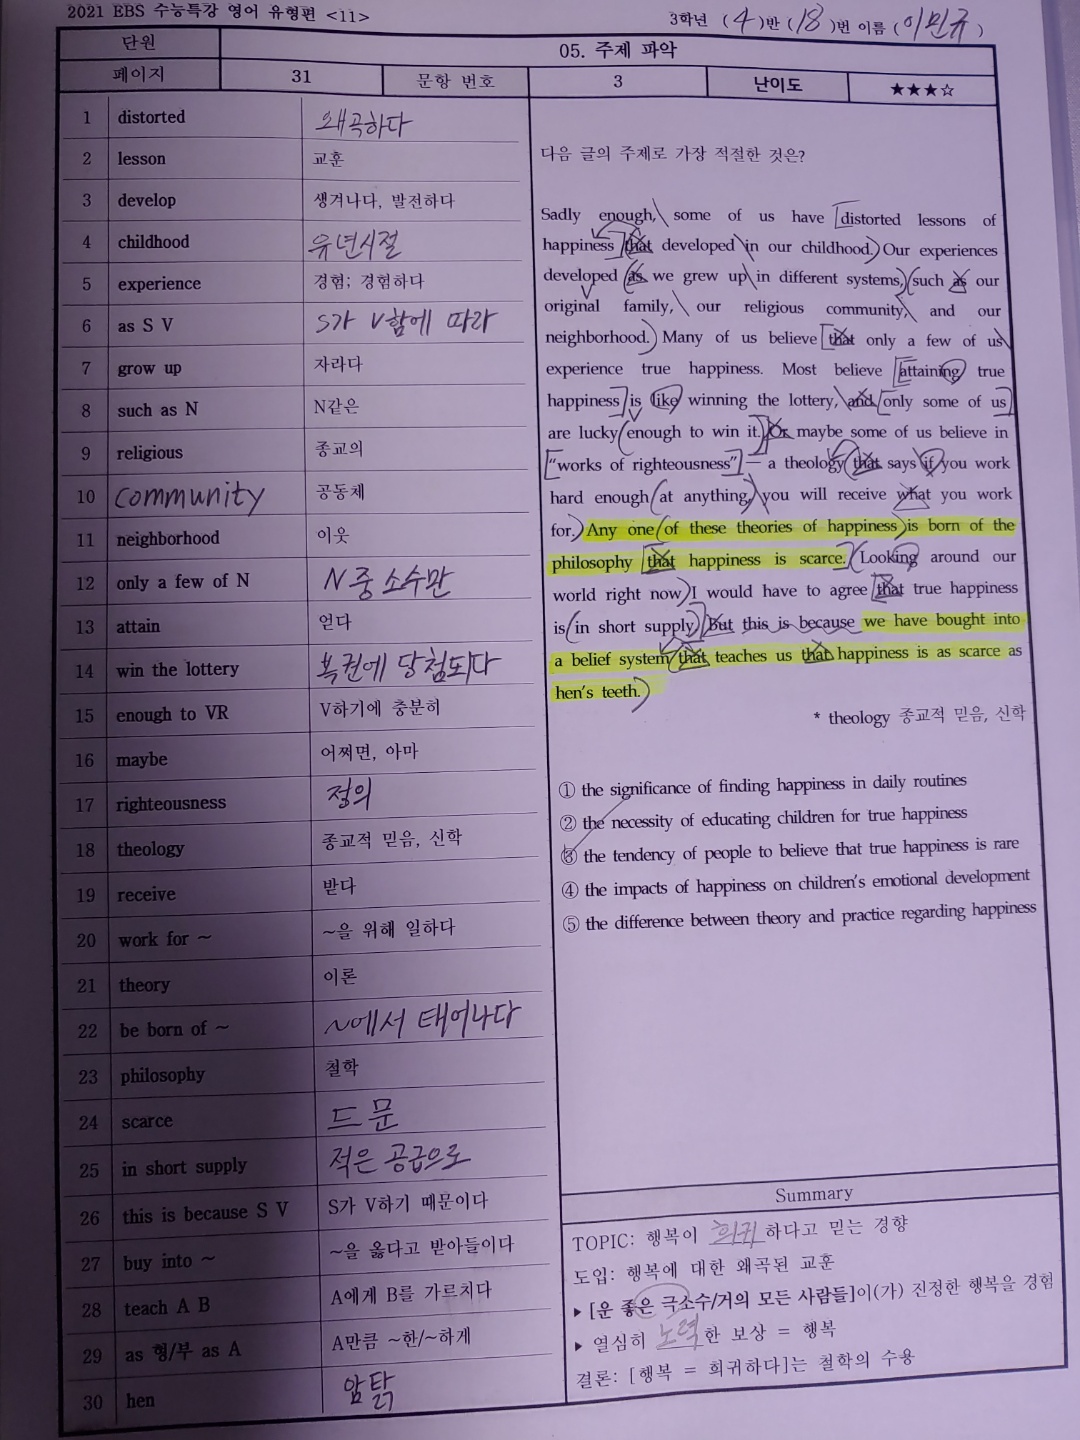 2021 EBS 수능특강 영어 유형편 <11>
3학년 ( 4 )반 ( 18 )번 이름 ( 이민규 )
단원 05. 주제 파악
페이지 31 문항 번호 3 난이도 ★★★☆
1 distorted 왜곡하다
2 lesson 교훈
3 develop 생겨나다, 발전하다
4 childhood 유년시절
5 experience 경험; 경험하다
6 as S V S가 V함에 따라
7 grow up 자라다
8 such as N N같은
9 religious 종교의
10 community 공동체
11 neighborhood 이웃
12 only a few of N N중 소수만
13 attain 얻다
14 win the lottery 복권에 당첨되다
15 enough to VR V하기에 충분히
16 maybe 어쩌면, 아마
17 righteousness 정의
18 theology 종교적 믿음, 신학
19 receive 받다
20 work for ~ ~을 위해 일하다
21 theory 이론
22 be born of ~ ~에서 태어나다
23 philosophy 철학
24 scarce 드문
25 in short supply 적은 공급으로
26 this is because S V S가 V하기 때문이다
27 buy into ~ ~을 옳다고 받아들이다
28 teach A B A에게 B를 가르치다
29 as 형/부 as A A만큼 ~한/~하게
30 hen 암탉
다음 글의 주제로 가장 적절한 것은?
Sadly enough, some of us have distorted lessons of
happiness that developed in our childhood. Our experiences
developed as we grew up in different systems, such as our
original family, our religious community, and our
neighborhood. Many of us believe that only a few of us
experience true happiness. Most believe attaining true
happiness is like winning the lottery, and only some of us
are lucky enough to win it. Or maybe some of us believe in
“works of righteousness” — a theology that says if you work
hard enough at anything, you will receive what you work
for. Any one of these theories of happiness is born of the
philosophy that happiness is scarce. Looking around our
world right now, I would have to agree that true happiness
is in short supply. But this is because we have bought into
a belief system that teaches us that happiness is as scarce as
hen’s teeth.
* theology 종교적 믿음, 신학
① the significance of finding happiness in daily routines
② the necessity of educating children for true happiness
③ the tendency of people to believe that true happiness is rare
④ the impacts of happiness on children’s emotional development
⑤ the difference between theory and practice regarding happiness
Summary
TOPIC: 행복이 희귀 하다고 믿는 경향
도입: 행복에 대한 왜곡된 교훈
▸ [운 좋은 극소수/거의 모든 사람들]이(가) 진정한 행복을 경험
▸ 열심히 노력 한 보상 = 행복
결론: [행복 = 희귀하다]는 철학의 수용